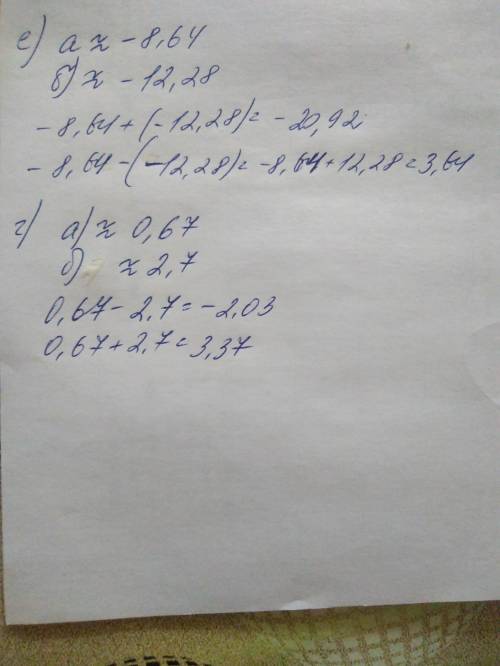 е) а ≈ -8,64
б) ≈ -12,28
-8,64+(-12,28)= -20,92
-8,64-(-12,28)= -8,64+12,28=3,64
г) а) ≈ 0,67
б) ≈ 2,7
0,67-2,7=-2,03
0,67+2,7= 3,37